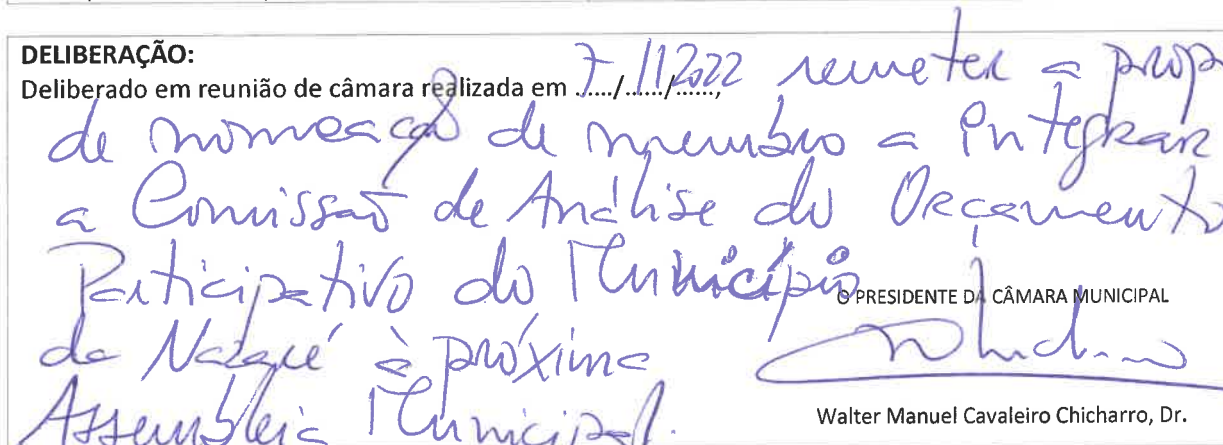 DELIBERAÇÃO:
Deliberado em reunião de câmara realizada em 7/11/2022, remeter a prop
de nomeação de membro a integrar
a Comissão de Análise do Orçamento
Participativo do Município
O PRESIDENTE DA CÂMARA MUNICIPAL
da Nazaré à próxima
Assembleia Municipal.
Walter Manuel Cavaleiro Chicharro, Dr.